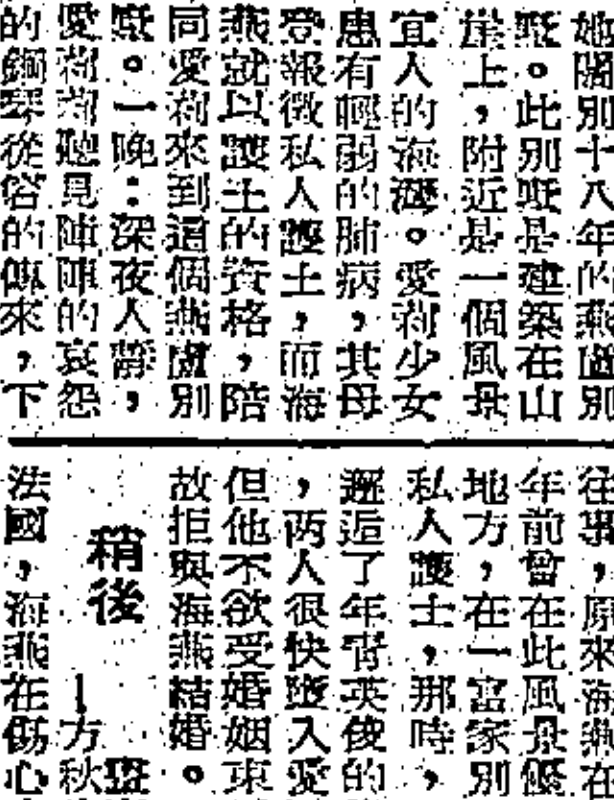 她闊別十八年的燕廬別
墅。此別墅是建築在山
崖上，附近是一個風景
宜人的海灣。愛莉少女
患有輕弱的肺病，其母
登報徵私人護士，而海
燕就以護士的資格，陪
同愛莉來到這個燕廬別
墅。一晚：深夜人靜，
愛莉莉聽見陣陣的哀怨
的鋼琴從容的傳來，下
往事，原來海燕在
年前曾在此風景優
地方，在一富家別
私人護士，那時，
邂逅了年青英俊的
，两人很快墮入愛
但他不欲受婚姻束
故拒與海燕結婚。
稍後
｜方秋
法國，海燕在傷心